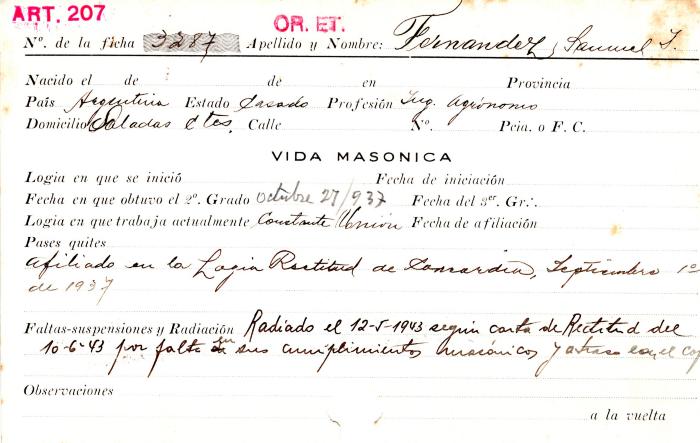 ART. 207
OR. ET.
Nº. de la ficha 3287 Apellido y Nombre: Fernandez, Samuel
Nacido el de de en Provincia
País Argentina Estado Casado Profesión Ing. Agrónomo
Domicilio Saladas Ctes. Calle Nº. Pcia. o F. C.
VIDA MASONICA
Logia en que se inició Fecha de iniciación
Fecha en que obtuvo el 2º. Grado Octubre 27/937 Fecha del 3er. Gr∴
Logia en que trabaja actualmente Constante Unión Fecha de afiliación
Pases quites
Afiliado en la Logia Rectitud de Concordia, Septiembre 1º
de 1937
Faltas-suspensiones y Radiación Radiado el 12-5-1943 según carta de Rectitud del
10-6-43 por falta en sus cumplimientos masónicos y atraso con el
Observaciones
a la vuelta